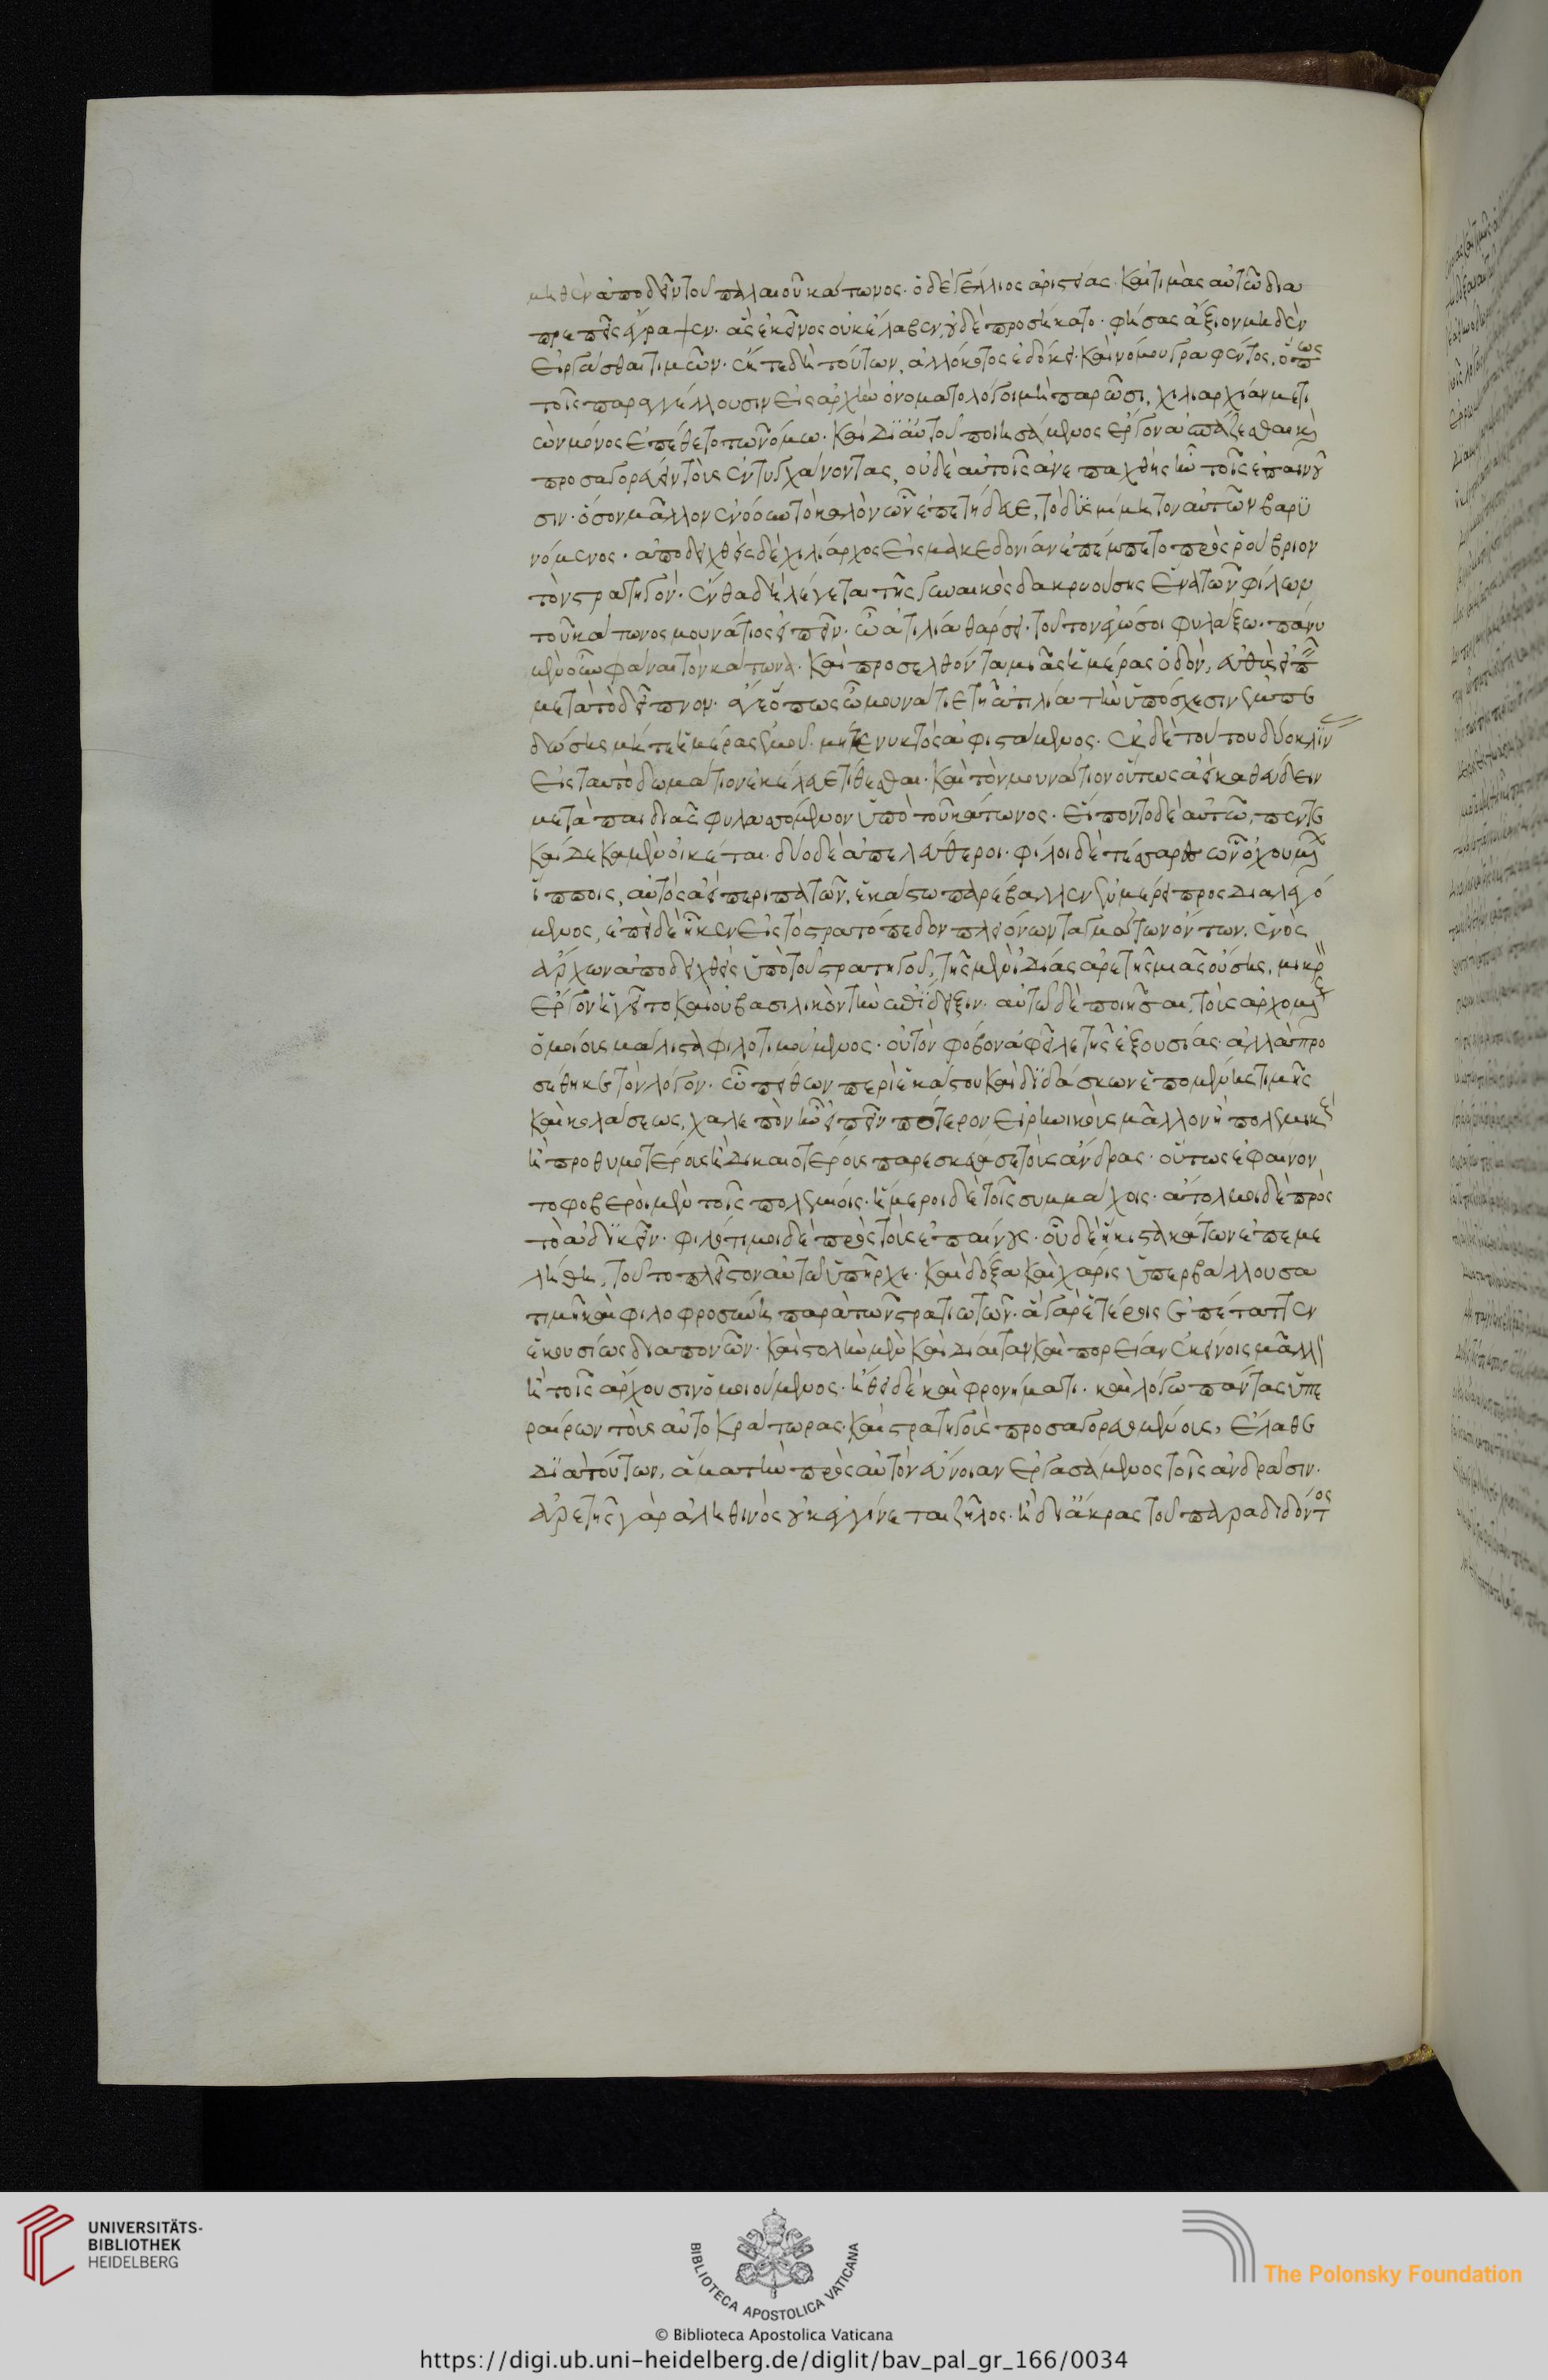 μηθὲν ἀποδεῖν τοῦ παλαιοῦ κάτωνος. ὁ δὲ γέλλιος ἀριστείας. καὶ τιμὰς αὐτῶ δια
πρεπεῖς ἔγραψεν. ἃς ἐκεῖνος οὐκ ἔλαβεν, οὐδὲ προσήκατο. φήσας ἄξιον μηδὲν
εἰργάσθαι τιμῶν. ἔκ τε δὴ τούτων, ἀλλόκοτος ἐδόκει. καὶ νόμου γραφέντος, ὅπως
τοῖς παραγγέλλουσιν εἰς ἀρχὴν ὀνοματολόγοι μὴ παρῶσι, χιλιαρχίαν μετι
ὼν μόνος ἐπείθετο τῶ νόμω. καὶ δι' αὑτοῦ ποιησάμενος ἔργον ἀσπάζεσθαι καὶ
προσαγορεύειν τοὺς ἐντυγχάνοντας, οὐδὲ αὐτοῖς ἀνεπαχθὴς ἦν τοῖς ἐπαινοῦ
σιν. ὅσον μᾶλλον ἐνόουν τὸ καλὸν ὧν ἐπετήδευε, τὸ δυσμίμητον αὐτῶν βαρυ
νόμενος. ἀποδειχθεὶς δὲ χιλίαρχος εἰς μακεδονίαν ἐπέμπετο πρὸς ῥούβριον
τὸν στρατηγόν. ἔνθα δὴ λέγεται τῆς γυναικὸς δακρυούσης ἕνα τῶν φίλων
τοῦ κάτωνος μουνάτιος εἰπεῖν. ὦ ἀτιλία θάρσει. τοῦτον ἐγώ σοι φυλάξω. πάνυ
μὲν οὖν φάναι τὸν κάτωνα. καὶ προσελθόντα μιᾶς ἡμέρας ὁδὸν, εὐθὺς εἰπεῖν
μετὰ τὸ δεῖπνον. ἄγε ὅπως ὦ μουνάτιε τῆ ἀτιλία τὴν ὑπόσχεσιν ἐμπε
δώσης μήτε ἡμέρας ἐμοῦ. μήτε νυκτὸς ἀφιστάμενος. ἐκ δὲ τούτου δύο κλίν
εἰς ταυτὸ δωμάτιον ἐκέλευε τίθεσθαι. καὶ τὸν μουνάτιον οὕτως ἀεὶ καθεύδειν
μετὰ παιδιᾶς φυλαττόμενον ὑπὸ τοῦ κάτωνος. εἵποντο δὲ αὐτῶ, πέντε
καὶ δέκα μὲν οἰκέται. δύο δὲ ἀπελεύθεροι. φίλοι δὲ τέσσαρες ὧν ὀχουμένων
ἵπποις, αὐτὸς ἀεὶ περιπατῶν, ἑκάστω παρέβαλλεν ἐν μέρει προσδιαλεγό
μενος, ἐπεὶ δὲ ἧκεν εἰς τὸ στρατόπεδον πλειόνων ταγμάτων ὄντων, ἑνὸς
ἄρχων ἀποδειχθεὶς ὑπὸ τοῦ στρατηγοῦ, τῆς μὲν ἰδίας ἀρετῆς μιᾶς οὔσης, μικρὸν
ἔργον ἡγεῖτο καὶ οὐ βασιλικὸν τὴν ἐπίδειξιν. αὐτῶ δὲ ποιῆσαι, τοὺς ἀρχομένους
ὁμοίους μάλιστα φιλοτιμούμενος. οὐ τὸν φόβον ἀφεῖλε τῆς ἐξουσίας. ἀλλὰ προ
σέθηκε τὸν λόγον. ὧ πείθων περὶ ἑκάστου καὶ διδάσκων ἑπομένης τιμῆς
καὶ κολάσεως, χαλεπὸν ἦν εἰπεῖν πότερον εἰρηνικοὺς μᾶλλον ἢ πολεμικοὺς
ἢ προθυμοτέρους ἢ δικαιοτέρους παρεσκεύασε τοὺς ἄνδρας. οὕτως ἐφαίνον
το φοβεροὶ μὲν τοῖς πολεμίοις. ἥμεροι δὲ τοῖς συμμάχοις. ἄτολμοι δὲ πρὸς
τὸ ἀδικεῖν. φιλότιμοι δὲ πρὸς τοὺς ἐπαίνους. οὗ δὲ ἥκιστα κάτων ἐπεμε
λήθη, τοῦτο πλεῖστον αὐτῶ ὑπῆρχε. καὶ δόξα καὶ χάρις ὑπερβάλλουσα
τιμὴ καὶ φιλοφροσύνη παρὰ τῶν στρατιωτῶν. ἃ γὰρ ἑτέροις ἐπέταττεν
ἑκουσίως διαπονῶν. καὶ στολὴν μὲν καὶ δίαιταν καὶ πορείαν ἐκείνοις μᾶλλον
ἢ τοῖς ἄρχουσιν ὁμοιούμενος. ἤθει δὲ καὶ φρονήματι. καὶ λόγω πάντας ὑπε
ραίρων τοὺς αὐτοκράτωρας. καὶ στρατηγοὺς προσαγορευομένους, ἔλαθε
διὰ τούτων, ἅμα τὴν πρὸς αὐτὸν εὔνοιαν ἐργασάμενος τοῖς ἀνδράσιν.
ἀρετῆς γὰρ ἀληθινὸς οὐκ ἐγγίνεται ζῆλος. ἢ δι' ἄκρας τοῦ παραδιδόντος
UNIVERSITÄTS-
BIBLIOTHEK
HEIDELBERG
BIBLIOTECA APOSTOLICA VATICANA
The Polonsky Foundation
© Biblioteca Apostolica Vaticana
https://digi.ub.uni-heidelberg.de/diglit/bav_pal_gr_166/0034